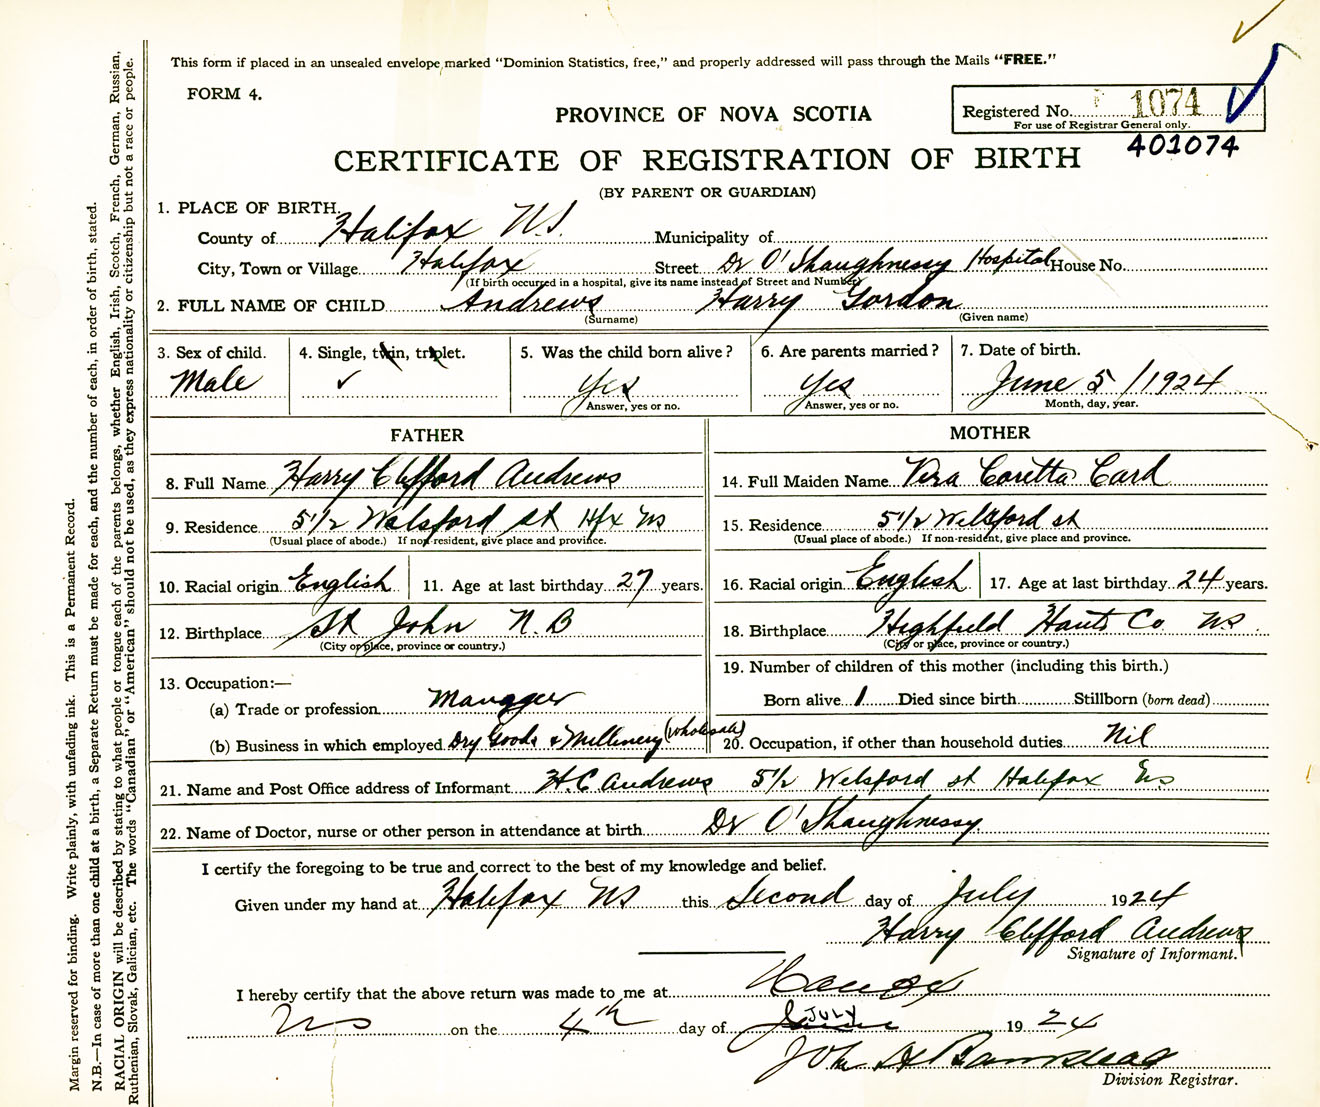 This form if placed in an unsealed envelope marked "Dominion Statistics, free," and properly addressed will pass through the Mails "FREE."
FORM 4.
PROVINCE OF NOVA SCOTIA
Registered No. 1074
For use of Registrar General only.
401074
CERTIFICATE OF REGISTRATION OF BIRTH
(BY PARENT OR GUARDIAN)
1. PLACE OF BIRTH.
County of Halifax N.S. Municipality of
City, Town or Village Halifax Street Dr O'Shaughnessy Hospital House No.
(If birth occurred in a hospital, give its name instead of Street and Number)
2. FULL NAME OF CHILD Andrews Harry Gordon
(Surname) (Given name)
3. Sex of child. 4. Single, twin, triplet. 5. Was the child born alive? 6. Are parents married? 7. Date of birth.
Male ✓ Yes Yes June 5 / 1924
Answer, yes or no. Answer, yes or no. Month, day, year.
FATHER MOTHER
8. Full Name Harry Clifford Andrews 14. Full Maiden Name Vera Coretta Card
9. Residence 5½ Welsford st Hfx NS 15. Residence 5½ Welsford st
(Usual place of abode.) If non-resident, give place and province. (Usual place of abode.) If non-resident, give place and province.
10. Racial origin English 11. Age at last birthday 27 years. 16. Racial origin English 17. Age at last birthday 24 years.
12. Birthplace St John N.B 18. Birthplace Highfield Hants Co NS.
(City or place, province or country.) (City or place, province or country.)
13. Occupation:— 19. Number of children of this mother (including this birth.)
(a) Trade or profession Manager Born alive 1 Died since birth Stillborn (born dead)
(b) Business in which employed Dry Goods & Millinery (wholesale) 20. Occupation, if other than household duties Nil
21. Name and Post Office address of Informant H.C Andrews 5½ Welsford st Halifax NS
22. Name of Doctor, nurse or other person in attendance at birth Dr O'Shaughnessy
I certify the foregoing to be true and correct to the best of my knowledge and belief.
Given under my hand at Halifax NS this Second day of July 1924
Harry Clifford Andrews
Signature of Informant.
I hereby certify that the above return was made to me at Halifax
NS on the 4th day of JULY 1924
John
Division Registrar.
Margin reserved for binding. Write plainly, with unfading ink. This is a Permanent Record.
N.B.—In case of more than one child at a birth, a Separate Return must be made for each, and the number of each, in order of birth, stated.
RACIAL ORIGIN will be described by stating to what people or tongue each of the parents belongs, whether English, Irish, Scotch, French, German, Russian,
Ruthenian, Slovak, Galician, etc. The words "Canadian" or "American" should not be used, as they express nationality or citizenship but not a race or people.